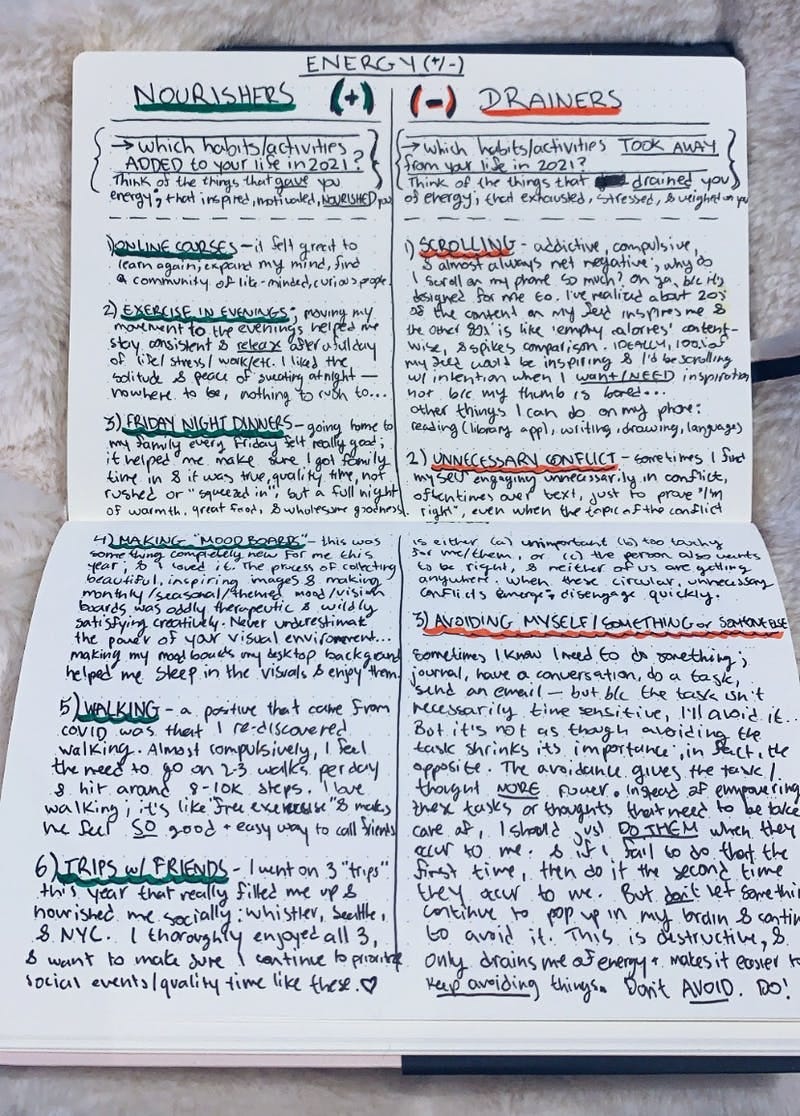 ENERGY (+/-)
NOURISHERS (+)
→ which habits/activities
ADDED to your life in 2021?
Think of the things that gave you
energy; that inspired, motivated, NOURISHED you
1) ONLINE COURSES - it felt great to
learn again, expand my mind, find
a community of like-minded, curious people.
2) EXERCISE IN EVENINGS; moving my
movement to the evenings helped me
stay consistent & release after a full day
of life/stress/work/etc. I liked the
solitude & peace of sweating at night —
nowhere to be, nothing to rush to...
3) FRIDAY NIGHT DINNERS - going home to
my family every Friday felt really good;
it helped me make sure I got family
time in & it was true, quality time, not
rushed or "squeezed in", but a full night
of warmth, great food, & wholesome goodness.
4) MAKING "MOOD BOARDS" - this was
something completely new for me this
year, & I loved it. The process of collecting
beautiful, inspiring images & making
monthly/seasonal/themed mood/vision
boards was oddly therapeutic & wildly
satisfying creatively. Never underestimate
the power of your visual environment...
making my mood boards my desktop background
helped me steep in the visuals & enjoy them.
5) WALKING - a positive that came from
covid was that I re-discovered
walking. Almost compulsively, I feel
the need to go on 2-3 walks per day
& hit around 8-10k steps. I love
walking; it's like "free exercise" & makes
me feel SO good + easy way to call friends
6) TRIPS w/ FRIENDS - I went on 3 "trips"
this year that really filled me up &
nourished me socially: Whistler, Seattle,
& NYC. I thoroughly enjoyed all 3,
& want to make sure I continue to prioritize
social events/quality time like these. ♡
(-) DRAINERS
→ which habits/activities TOOK AWAY
from your life in 2021?
Think of the things that drained you
of energy; that exhausted, stressed, & weighed on you
1) SCROLLING - addictive, compulsive,
& almost always net negative; why do
I scroll on my phone so much? Oh ya, b/c it's
designed for me to. I've realized about 20%
of the content on my feed inspires me &
the other 80% is like 'empty calories' content-
wise, & spikes comparison. IDEALLY, 100% of
my feed would be inspiring & I'd be scrolling
w/ intention when I want/NEED inspiration
not b/c my thumb is bored...
other things I can do on my phone:
reading (library app), writing, drawing, language)
2) UNNECESSARY CONFLICT - sometimes I find
myself engaging unnecessarily in conflict,
oftentimes over text, just to prove "I'm
right", even when the topic of the conflict
is either (a) unimportant (b) too touchy
for me/them, or (c) the person also wants
to be right, & neither of us are getting
anywhere. When these circular, unnecessary
conflicts emerge, disengage quickly.
3) AVOIDING MYSELF/SOMETHING or SOMEONE ELSE
Sometimes I know I need to do something;
journal, have a conversation, do a task,
send an email — but b/c the task isn't
necessarily time sensitive, I'll avoid it...
But it's not as though avoiding the
task shrinks its importance; in fact, the
opposite. The avoidance gives the task/
thought MORE power. Instead of empowering
these tasks or thoughts that need to be taken
care of, I should just DO THEM when they
occur to me. & if I fail to do that the
first time, then do it the second time
they occur to me. But don't let somethin
continue to pop up in my brain & contin
to avoid it. This is destructive, &
only drains me of energy + makes it easier to
keep avoiding things. Don't AVOID. DO!